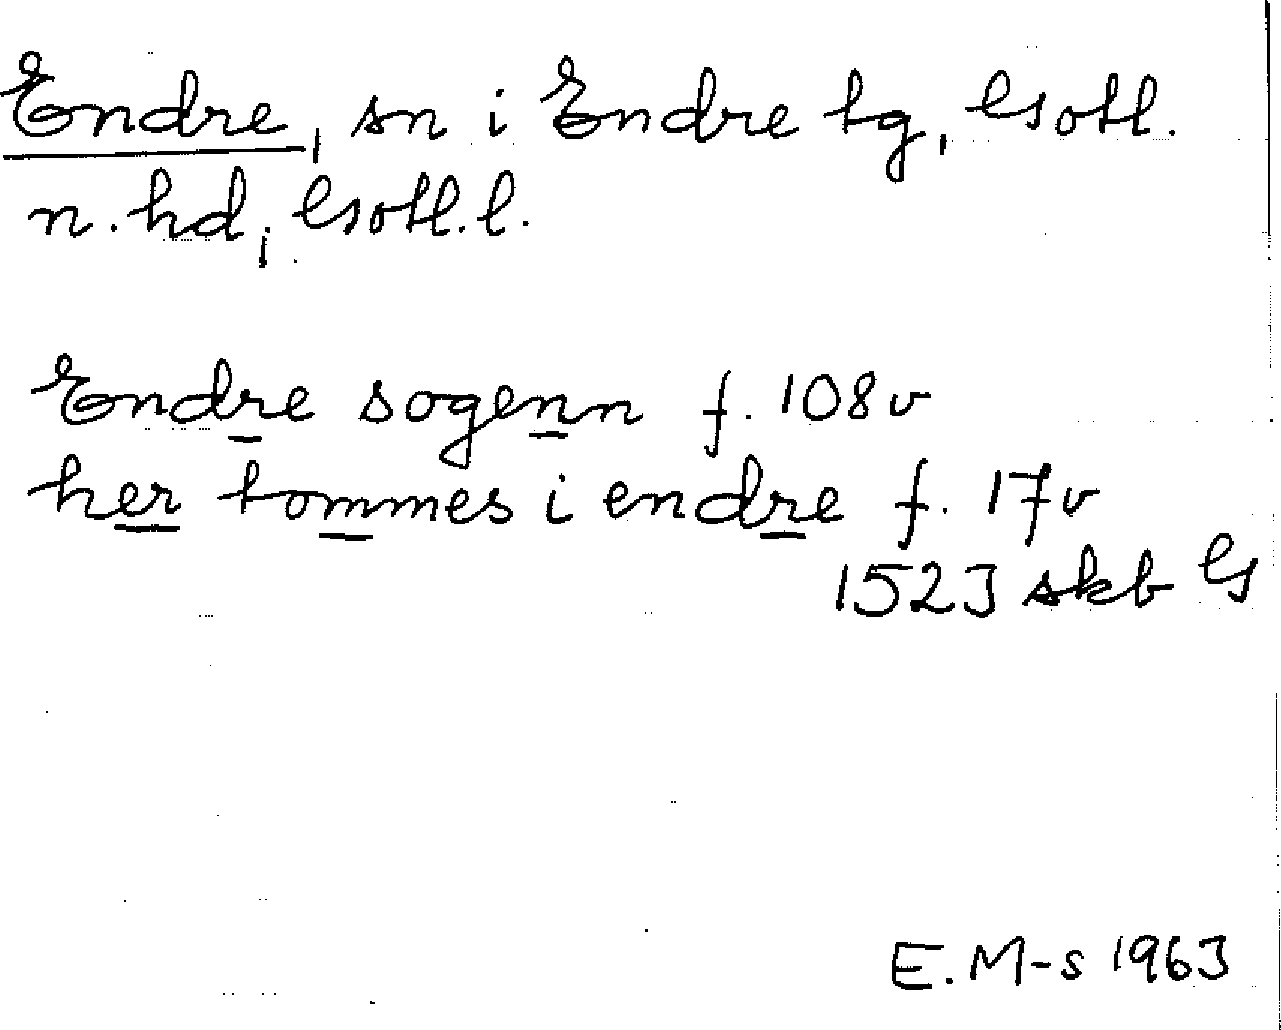 Endre, sn i Endre tg, Gotl.
n. hd, Gotl. l.
Endre sogenn f. 108v
her tommes i endre f. 17v
1523 skb G
E. M-s 1963